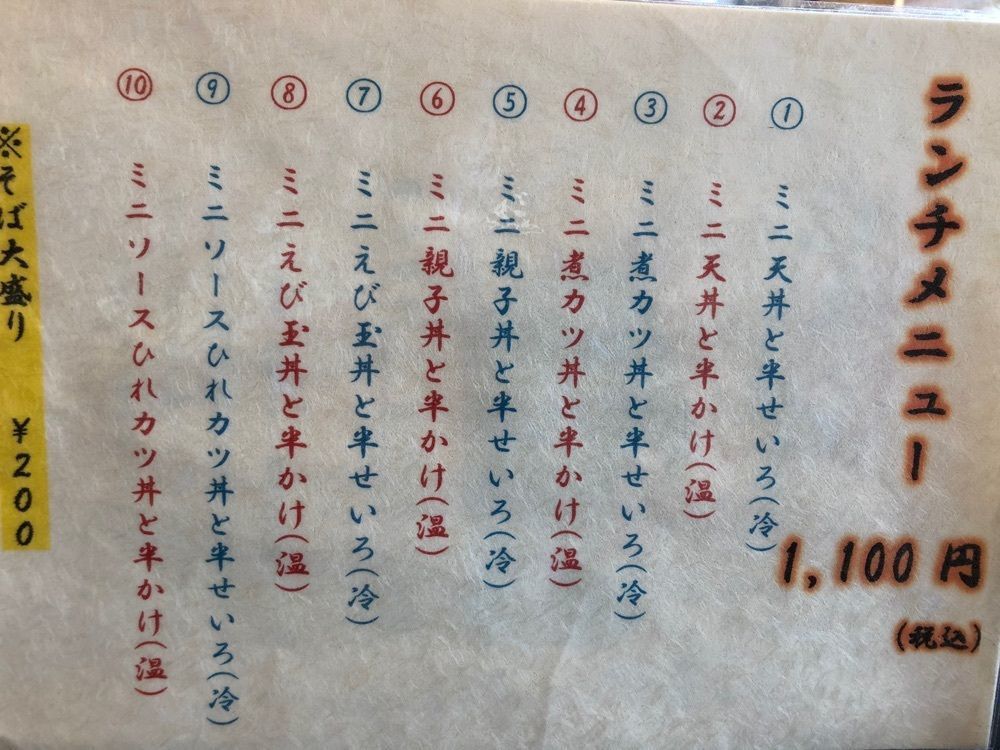 ランチメニュー
1,100円
(税込)
① ミニ天丼と半せいろ(冷)
② ミニ天丼と半かけ(温)
③ ミニ煮カツ丼と半せいろ(冷)
④ ミニ煮カツ丼と半かけ(温)
⑤ ミニ親子丼と半せいろ(冷)
⑥ ミニ親子丼と半かけ(温)
⑦ ミニえび玉丼と半せいろ(冷)
⑧ ミニえび玉丼と半かけ(温)
⑨ ミニソースひれカツ丼と半せいろ(冷)
⑩ ミニソースひれカツ丼と半かけ(温)
※そば大盛り ¥200